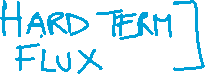 HARD TERM
FLUX